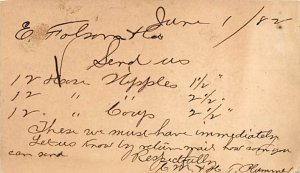 June 1 / 82
E Folsom & Co
Send us
12 Hose Nipples 1½"
12 " " 2½"
12 . " Coups 2½"
These we must have immediately
Let us know by return mail how soon you
can send
Respectfully
E. M. & H.